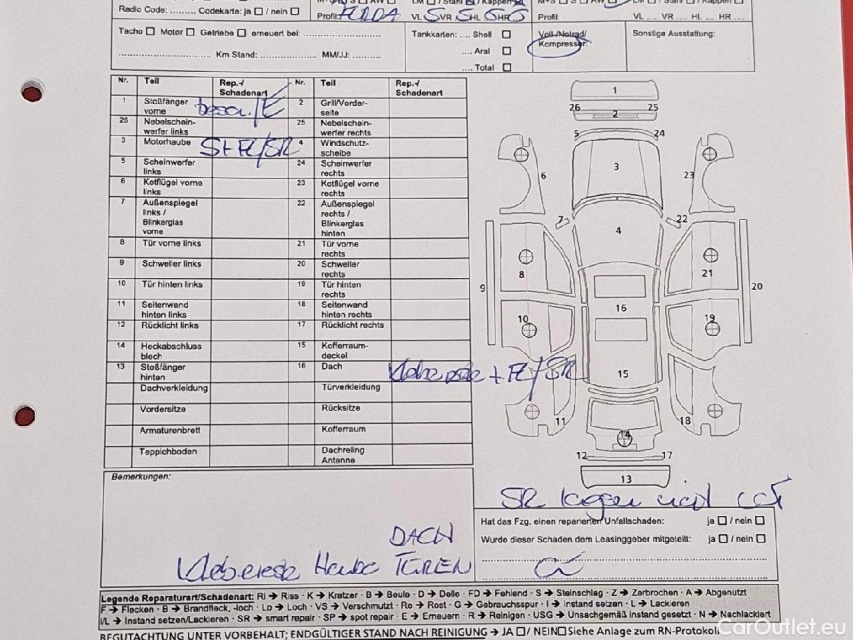 Radio Code: ......... Codekarte: ja ☐ / nein ☐
Profil:
VL SVR SHL SHR S
Profil
VL .... VR .... HL .... HR ....
Tacho ☐ Motor ☐ Getriebe ☐ erneuert bei:
Km Stand: MM/JJ:
Tankkarten: .... Shell ☐
.... Aral ☐
.... Total ☐
Voll-/Notrad/
Kompressor
Sonstige Ausstattung:
Nr. Teil Rep.-/ Schadenart Nr. Teil Rep.-/ Schadenart
1 Stoßfänger vorne /E 2 Grill/Vorder-seite
26 Nebelschein-werfer links 25 Nebelschein-werfer rechts
3 Motorhaube St+FL/SR 4 Windschutz-scheibe
5 Scheinwerfer links 24 Scheinwerfer rechts
6 Kotflügel vorne links 23 Kotflügel vorne rechts
7 Außenspiegel links / Blinkerglas vorne 22 Außenspiegel rechts / Blinkerglas hinten
8 Tür vorne links 21 Tür vorne rechts
9 Schweller links 20 Schweller rechts
10 Tür hinten links 19 Tür hinten rechts
11 Seitenwand hinten links 18 Seitenwand hinten rechts
12 Rücklicht links 17 Rücklicht rechts
14 Heckabschluss blech 15 Kofferraum-deckel
13 Stoßfänger hinten 16 Dach Klebereste + FL/SR
Dachverkleidung Türverkleidung
Vordersitze Rücksitze
Armaturenbrett Kofferraum
Teppichboden Dachreling Antenne
1
26 25
2
5 24
3
6 23
7 22
4
8 21
9 20
16
10 19
15
11 18
14
12 17
13
Bemerkungen:
DACH
Klebereste Haube TÜREN
SR
Hat das Fzg. einen reparierten Unfallschaden: ja ☐ / nein ☐
Wurde dieser Schaden dem Leasinggeber mitgeteilt: ja ☐ / nein ☐
Legende Reparaturart/Schadenart: RI → Riss - K → Kratzer - B → Beule - D → Delle - FD → Fehlend - S → Steinschlag - Z → Zerbrochen - A → Abgenutzt
F → Flecken - B → Brandfleck, -loch - Lo → Loch - VS → Verschmutzt - Ro → Rost - G → Gebrauchsspur - I → Instand setzen - L → Lackieren
I/L → Instand setzen/Lackieren - SR → smart repair - SP → spot repair - E → Erneuern - R → Reinigen - USG → Unsachgemäß instand gesetzt - N → Nachlackiert
BEGUTACHTUNG UNTER VORBEHALT; ENDGÜLTIGER STAND NACH REINIGUNG → JA ☐ / NEIN ☒ Siehe Anlage zum RN-Protokoll
CarOutlet.eu